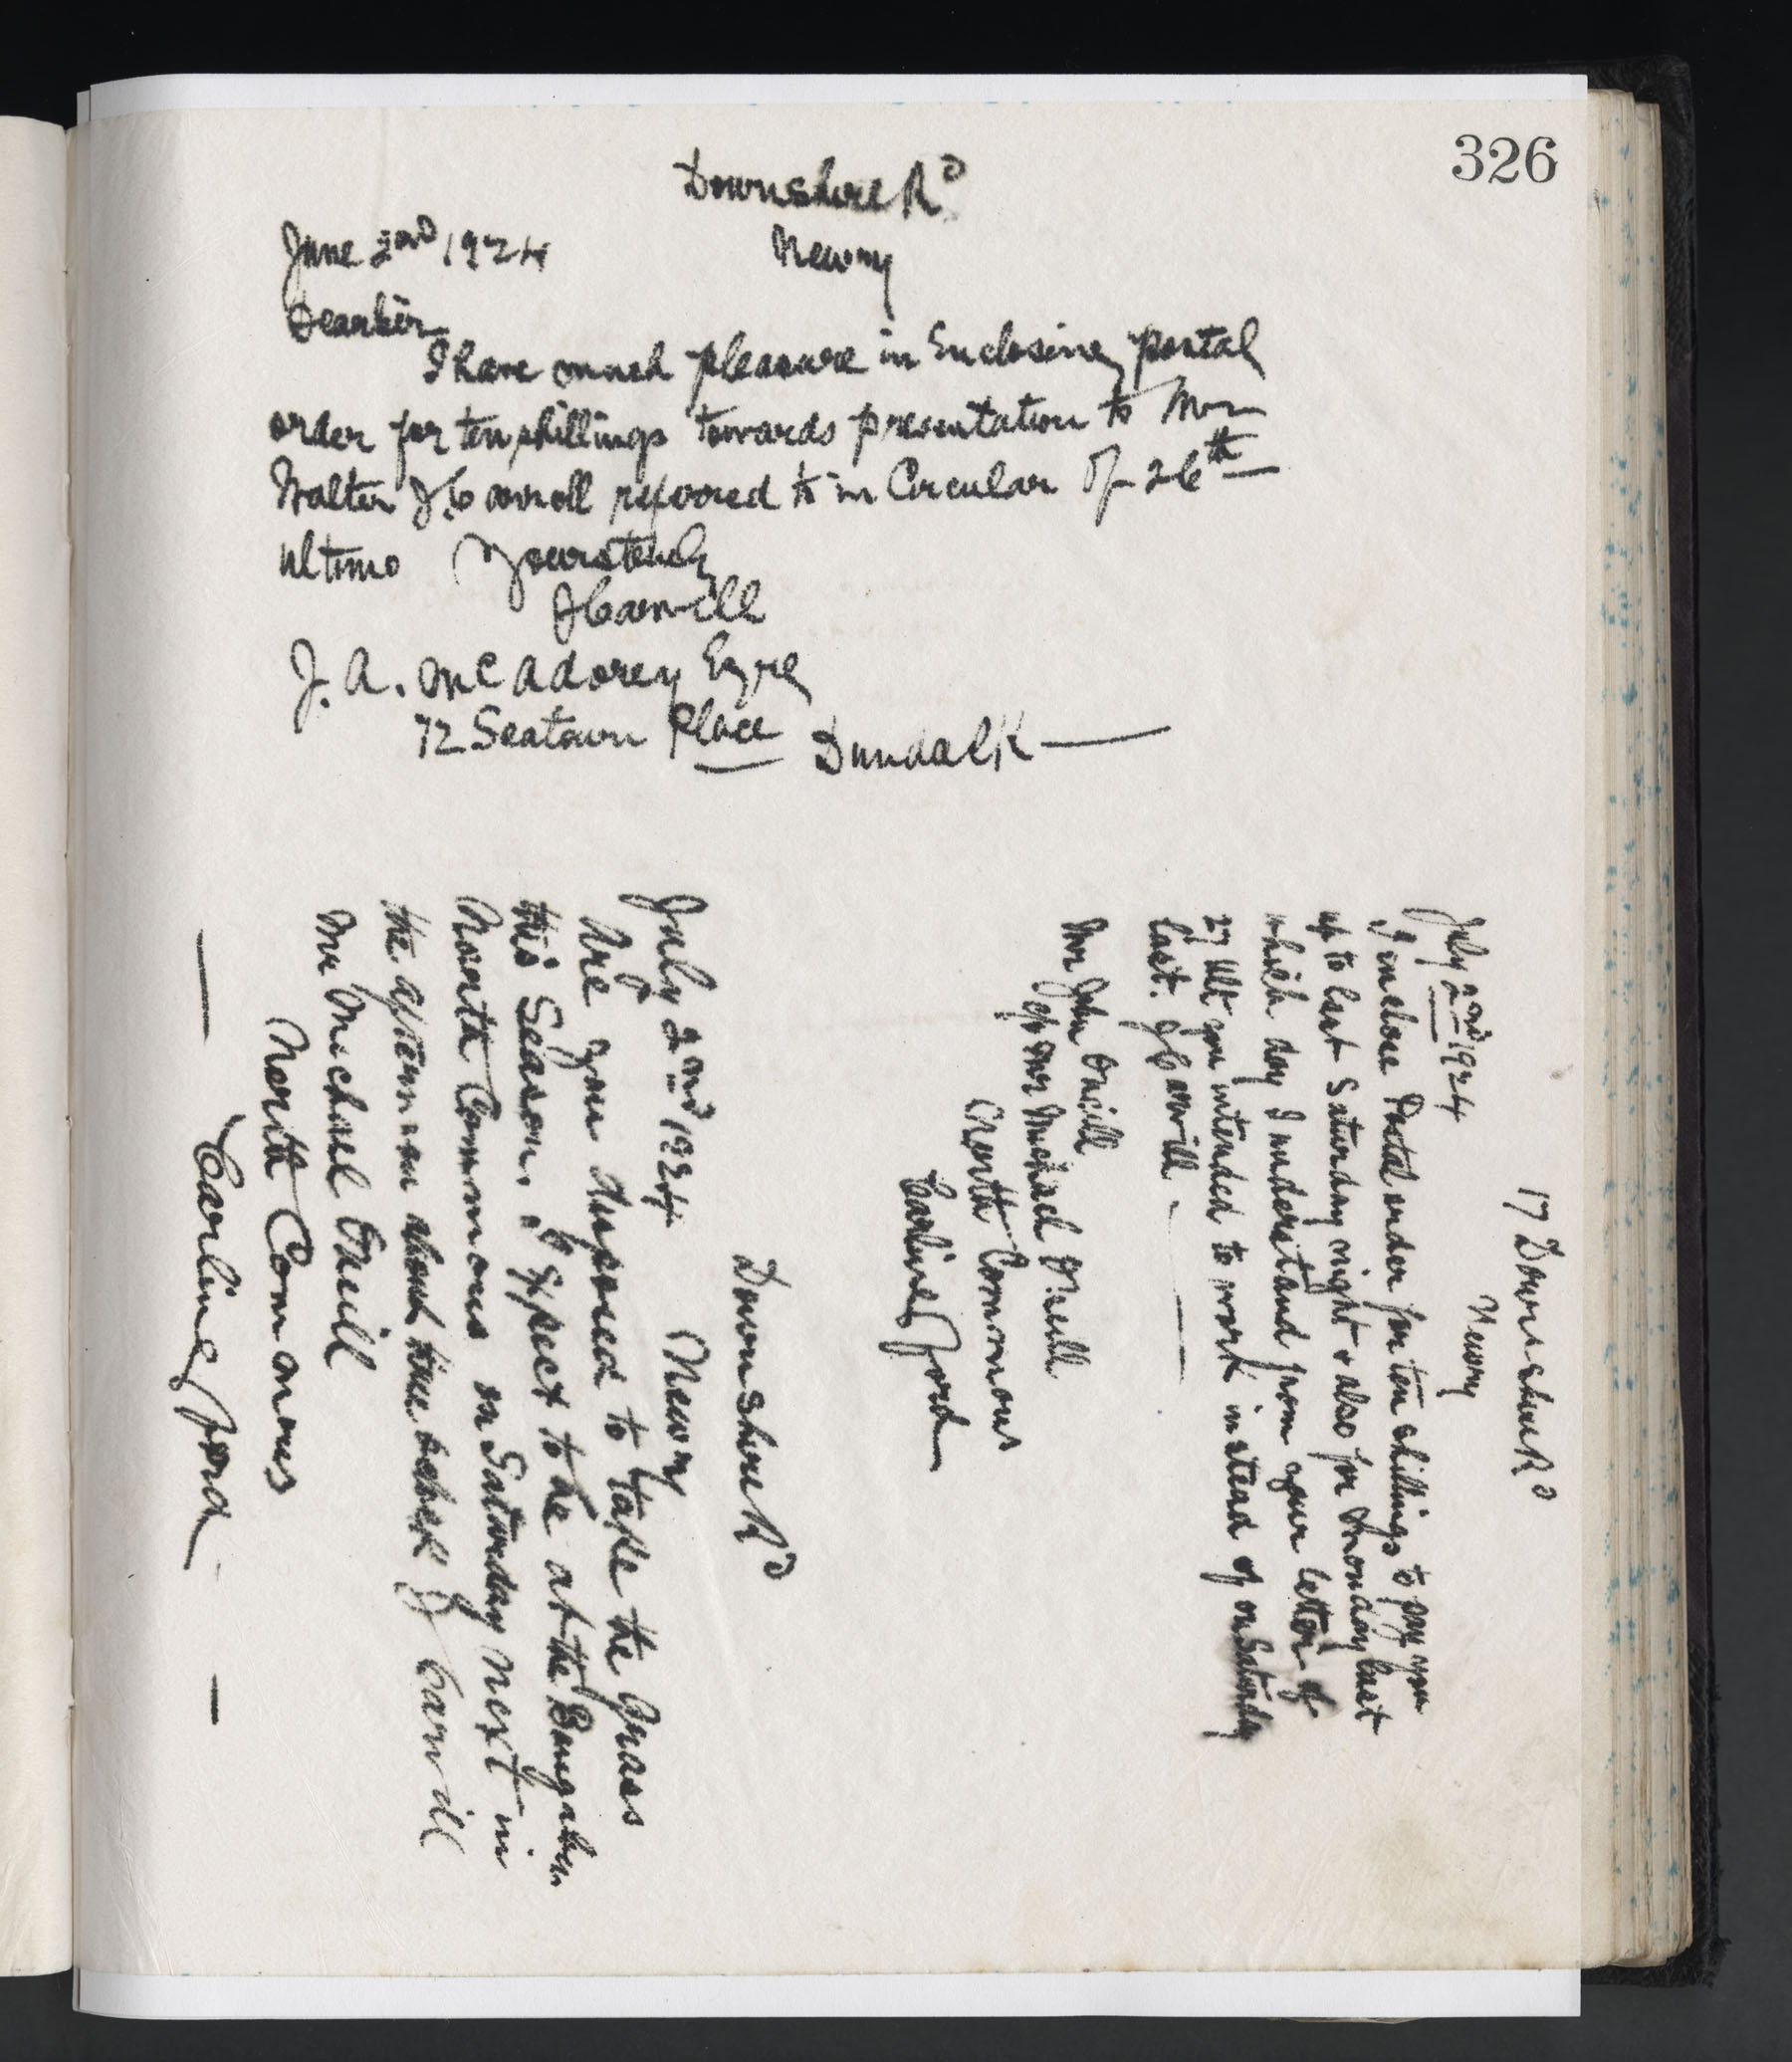 326
Downshire Rd
June 2nd 1924 Newry
Dear Sir
I have much pleasure in Enclosing postal
order for ten shillings towards presentation to Mr
Walter J. Carroll referred to in Circular of 26th
ultimo Yours truly
J Carvill
J. A. McAdorey Esqre
72 Seatown Place Dundalk
17 Downshire Rd
Newry
July 2nd 1924
I inclose Postal order for ten shillings to pay you
up to last Saturday night & also for Monday last
which day I understand from your letter of
27 Ult you intended to work instead of on Saturday
last. J Carvill
Mr John Oneill
c/o Mr Michael Oneill
North Commons
Carlingford
Downshire Rd
Newry
July 2nd 1924
Are you disposed to take the Grass
this Season. I Expect to be at the Bungalow
North Commons on Saturday next in
the afternoon about three oclock J Carvill
Mr Michael Oneill
North Commons
Carlingford